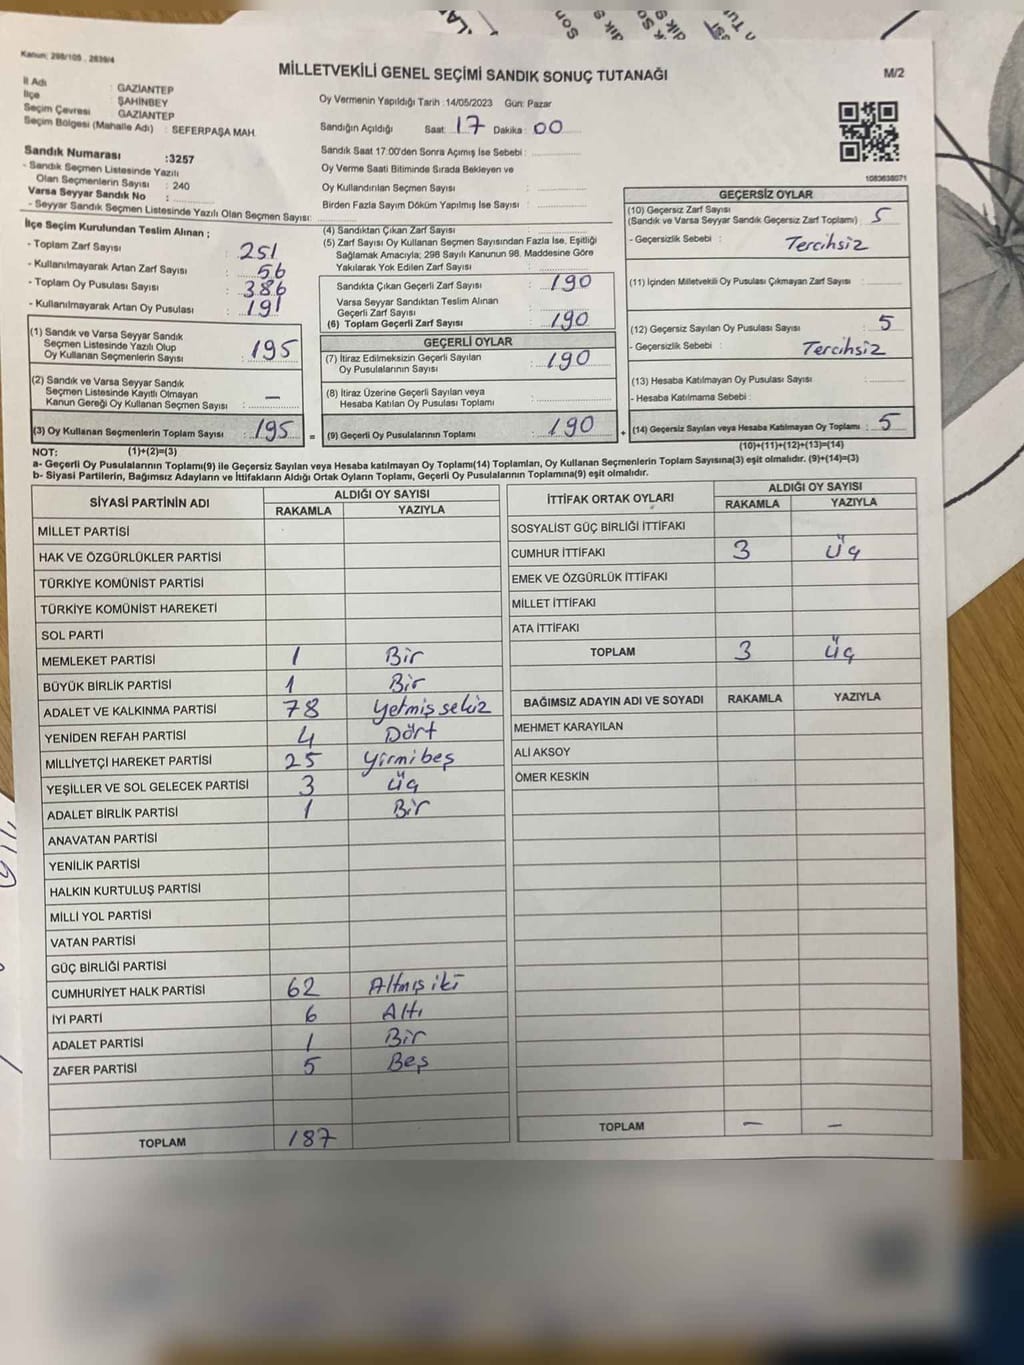 Kanun: 298/105 , 2839/4
MİLLETVEKİLİ GENEL SEÇİMİ SANDIK SONUÇ TUTANAĞI
M/2
İl Adı : GAZİANTEP
İlçe : ŞAHİNBEY
Seçim Çevresi : GAZİANTEP
Seçim Bölgesi (Mahalle Adı) : SEFERPAŞA MAH.
Sandık Numarası :3257
- Sandık Seçmen Listesinde Yazılı
Olan Seçmenlerin Sayısı : 240
Varsa Seyyar Sandık No :
- Seyyar Sandık Seçmen Listesinde Yazılı Olan Seçmen Sayısı:
Oy Vermenin Yapıldığı Tarih :14/05/2023 Gün: Pazar
Sandığın Açıldığı Saat: 17 Dakika: 00
Sandık Saat 17:00'den Sonra Açımış İse Sebebi :
Oy Verme Saati Bitiminde Sırada Bekleyen ve
Oy Kullandırılan Seçmen Sayısı :
Birden Fazla Sayım Döküm Yapılmış İse Sayısı :
1083638071
İlçe Seçim Kurulundan Teslim Alınan ;
- Toplam Zarf Sayısı : 251
- Kullanılmayarak Artan Zarf Sayısı : 56
- Toplam Oy Pusulası Sayısı : 386
- Kullanılmayarak Artan Oy Pusulası : 191
(1) Sandık ve Varsa Seyyar Sandık
Seçmen Listesinde Yazılı Olup
Oy Kullanan Seçmenlerin Sayısı : 195
(2) Sandık ve Varsa Seyyar Sandık
Seçmen Listesinde Kayıtlı Olmayan
Kanun Gereği Oy Kullanan Seçmen Sayısı : —
(3) Oy Kullanan Seçmenlerin Toplam Sayısı : 195
(1)+(2)=(3)
(4) Sandıktan Çıkan Zarf Sayısı :
(5) Zarf Sayısı Oy Kullanan Seçmen Sayısından Fazla İse, Eşitliği
Sağlamak Amacıyla; 298 Sayılı Kanunun 98. Maddesine Göre
Yakılarak Yok Edilen Zarf Sayısı :
Sandıkta Çıkan Geçerli Zarf Sayısı : 190
Varsa Seyyar Sandıktan Teslim Alınan
Geçerli Zarf Sayısı :
(6) Toplam Geçerli Zarf Sayısı : 190
GEÇERLİ OYLAR
(7) İtiraz Edilmeksizin Geçerli Sayılan
Oy Pusulalarının Sayısı : 190
(8) İtiraz Üzerine Geçerli Sayılan veya
Hesaba Katılan Oy Pusulası Toplamı :
= (9) Geçerli Oy Pusulalarının Toplamı : 190
GEÇERSİZ OYLAR
(10) Geçersiz Zarf Sayısı
(Sandık ve Varsa Seyyar Sandık Geçersiz Zarf Toplamı) : 5
- Geçersizlik Sebebi : Tercihsiz
(11) İçinden Milletvekili Oy Pusulası Çıkmayan Zarf Sayısı :
(12) Geçersiz Sayılan Oy Pusulası Sayısı : 5
- Geçersizlik Sebebi : Tercihsiz
(13) Hesaba Katılmayan Oy Pusulası Sayısı :
- Hesaba Katılmama Sebebi :
+ (14) Geçersiz Sayılan veya Hesaba Katılmayan Oy Toplamı : 5
(10)+(11)+(12)+(13)=(14)
NOT:
a- Geçerli Oy Pusulalarının Toplamı(9) ile Geçersiz Sayılan veya Hesaba katılmayan Oy Toplamı(14) Toplamları, Oy Kullanan Seçmenlerin Toplam Sayısına(3) eşit olmalıdır. (9)+(14)=(3)
b- Siyasi Partilerin, Bağımsız Adayların ve İttifakların Aldığı Ortak Oyların Toplamı, Geçerli Oy Pusulalarının Toplamına(9) eşit olmalıdır.
SİYASİ PARTİNİN ADI ALDIĞI OY SAYISI
RAKAMLA YAZIYLA
MİLLET PARTİSİ
HAK VE ÖZGÜRLÜKLER PARTİSİ
TÜRKİYE KOMÜNİST PARTİSİ
TÜRKİYE KOMÜNİST HAREKETİ
SOL PARTİ
MEMLEKET PARTİSİ 1 Bir
BÜYÜK BİRLİK PARTİSİ 1 Bir
ADALET VE KALKINMA PARTİSİ 78 Yetmiş sekiz
YENİDEN REFAH PARTİSİ 4 Dört
MİLLİYETÇİ HAREKET PARTİSİ 25 Yirmi beş
YEŞİLLER VE SOL GELECEK PARTİSİ 3 Üç
ADALET BİRLİK PARTİSİ 1 Bir
ANAVATAN PARTİSİ
YENİLİK PARTİSİ
HALKIN KURTULUŞ PARTİSİ
MİLLİ YOL PARTİSİ
VATAN PARTİSİ
GÜÇ BİRLİĞİ PARTİSİ
CUMHURİYET HALK PARTİSİ 62 Altmış iki
İYİ PARTİ 6 Altı
ADALET PARTİSİ 1 Bir
ZAFER PARTİSİ 5 Beş
TOPLAM 187
İTTİFAK ORTAK OYLARI ALDIĞI OY SAYISI
RAKAMLA YAZIYLA
SOSYALİST GÜÇ BİRLİĞİ İTTİFAKI
CUMHUR İTTİFAKI 3 Üç
EMEK VE ÖZGÜRLÜK İTTİFAKI
MİLLET İTTİFAKI
ATA İTTİFAKI
TOPLAM 3 Üç
BAĞIMSIZ ADAYIN ADI VE SOYADI RAKAMLA YAZIYLA
MEHMET KARAYILAN
ALİ AKSOY
ÖMER KESKİN
TOPLAM — —